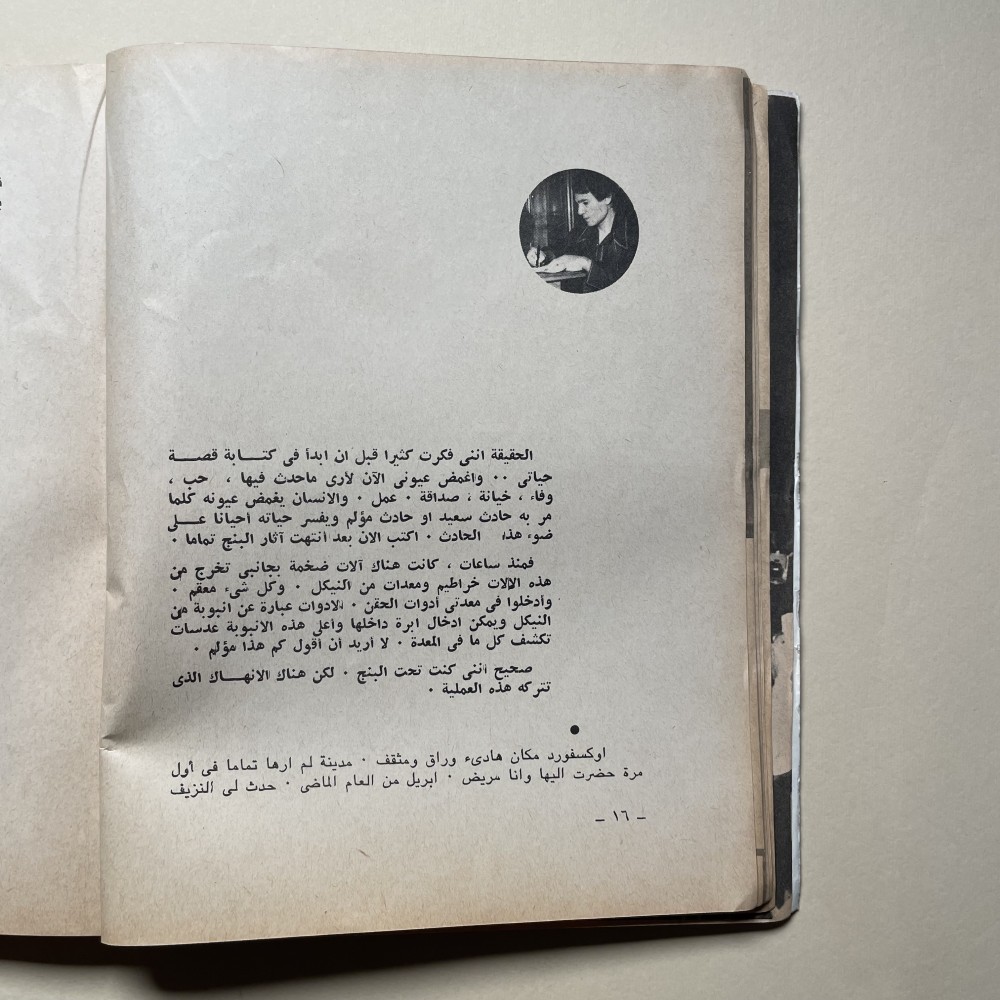 الحقيقة اننى فكرت كثيرا قبل ان ابدأ فى كتـــابة قصــة
حياتى ٠٠ واغمض عيونى الآن لأرى ماحدث فيها ، حب ،
وفاء ، خيانة ، صداقة ٠ عمل ٠ والانسان يغمض عيونه كلما
مر به حادث سعيد او حادث مؤلم ويفسر حياته أحيانا علـــى
ضوء هذا الحادث ٠ اكتب الان بعد انتهت آثار البنج تماما ٠
فمنذ ساعات ، كانت هناك آلات ضخمة بجانبى تخرج من
هذه الالات خراطيم ومعدات من النيكل ٠ وكل شىء معقم ٠
وأدخلوا فى معدتى أدوات الحقن ٠ الادوات عبارة عن انبوبة من
النيكل ويمكن ادخال ابرة داخلها وأعلى هذه الانبوبة عدسات
تكشف كل ما فى المعدة ٠ لا أريد أن أقول كم هذا مؤلم ٠
صحيح اننى كنت تحت البنج ٠ لكن هناك الانهـــاك الذى
تتركه هذه العملية ٠
●
اوكسفورد مكان هادىء وراق ومثقف ٠ مدينة لم ارها تماما فى أول
مرة حضرت اليها وانا مريض ٠ ابريل من العام الماضى ٠ حدث لى النزيف
– ١٦ –